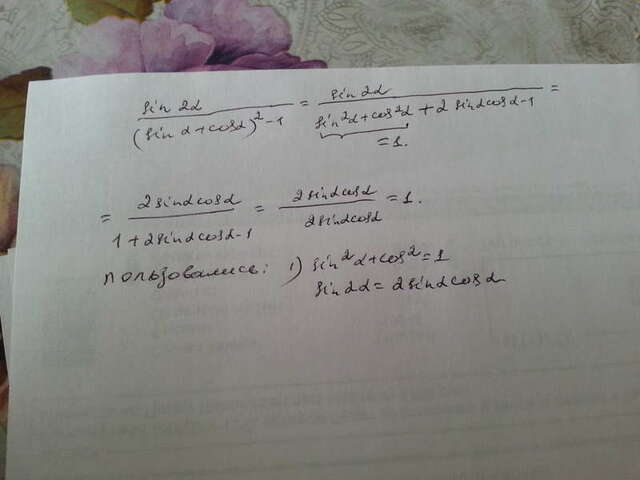 sin 2α / (sin α + cos α)² - 1 = sin 2α / sin²α + cos²α + 2 sin α cos α - 1 =
= 1.
= 2 sin α cos α / 1 + 2 sin α cos α - 1 = 2 sin α cos α / 2 sin α cos α = 1.
пользовались: 1) sin² α + cos² = 1
sin 2α = 2 sin α cos α